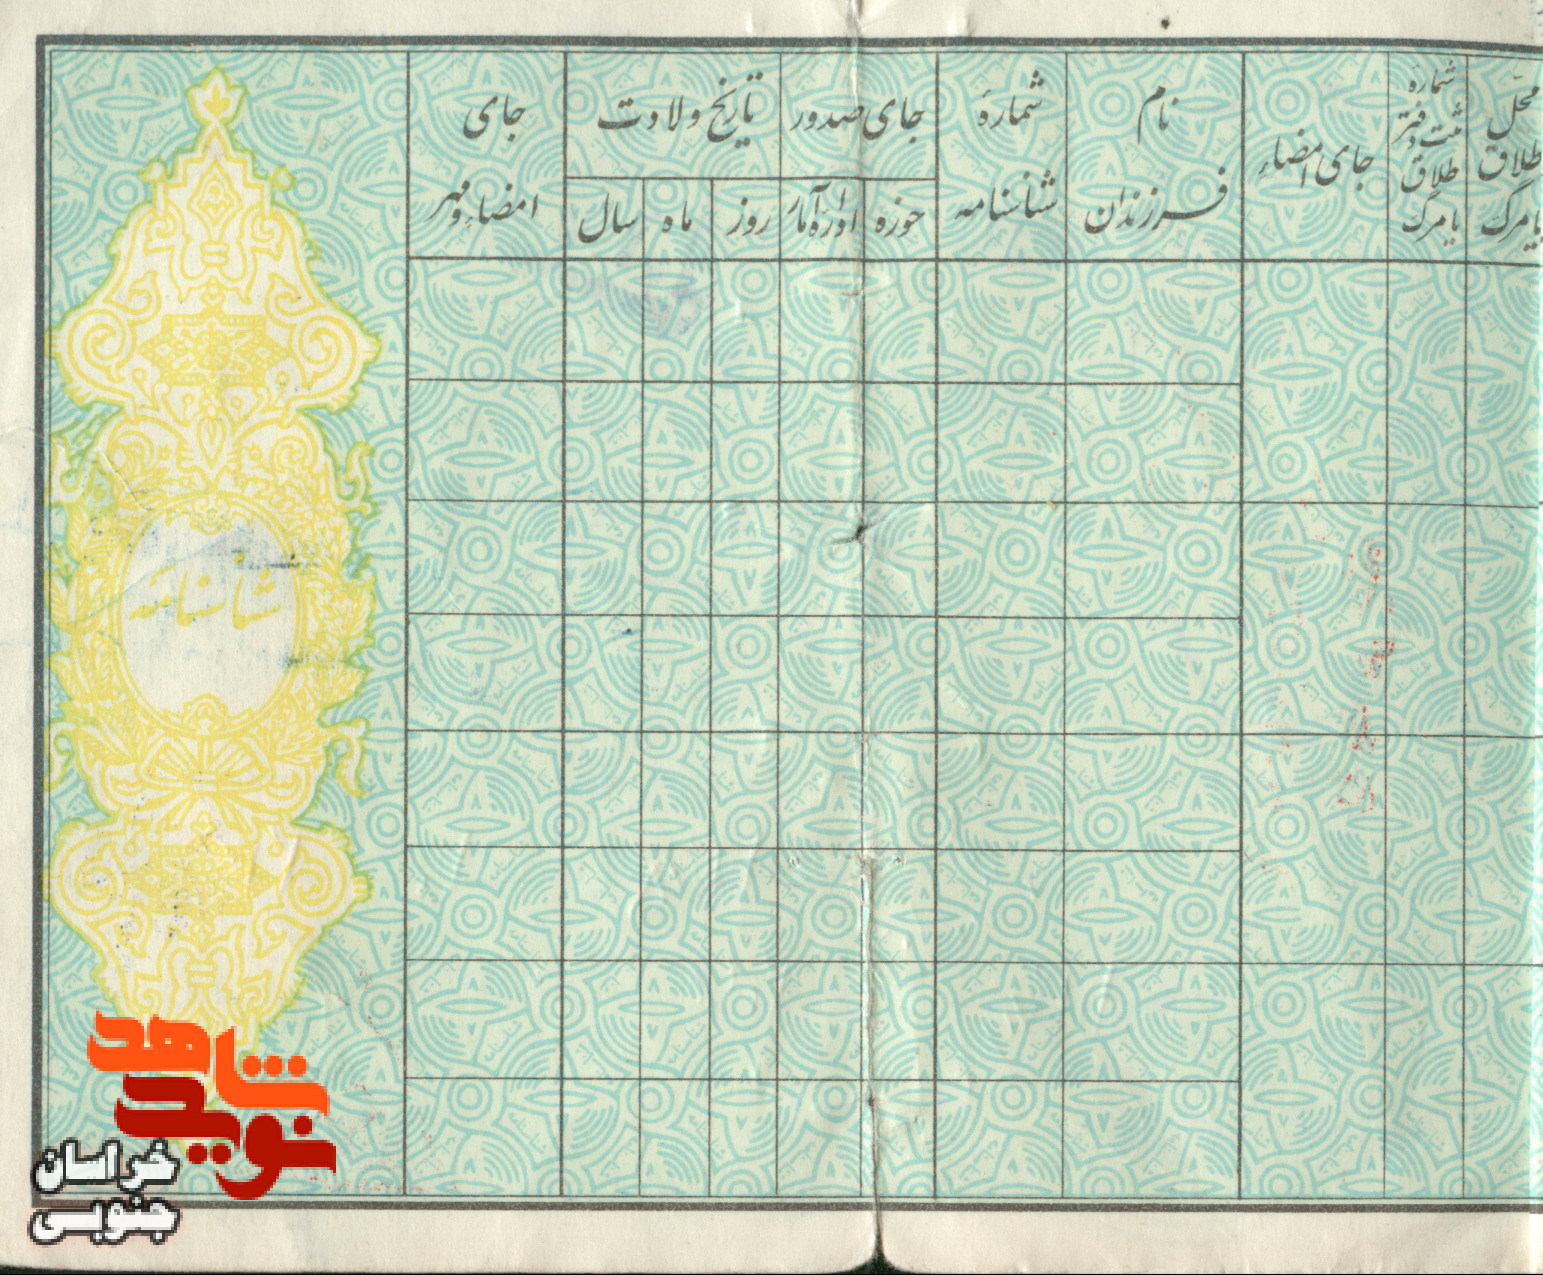 محل
طلاق
یا مرگ
شماره
ثبت دفتر
طلاق
یا مرگ
جای امضاء
نام
فرزندان
شمارهٔ
شناسنامه
جای صدور
حوزه
اداره آمار
تاریخ ولادت
روز
ماه
سال
جای
امضاء و مهر
شناسنامه
شاهد
نوید
خراسان
جنوبی